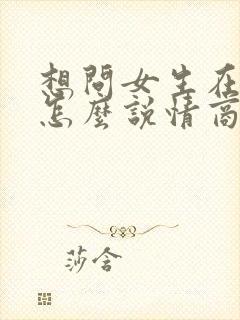 想問女生在
怎麼說情商
莎含